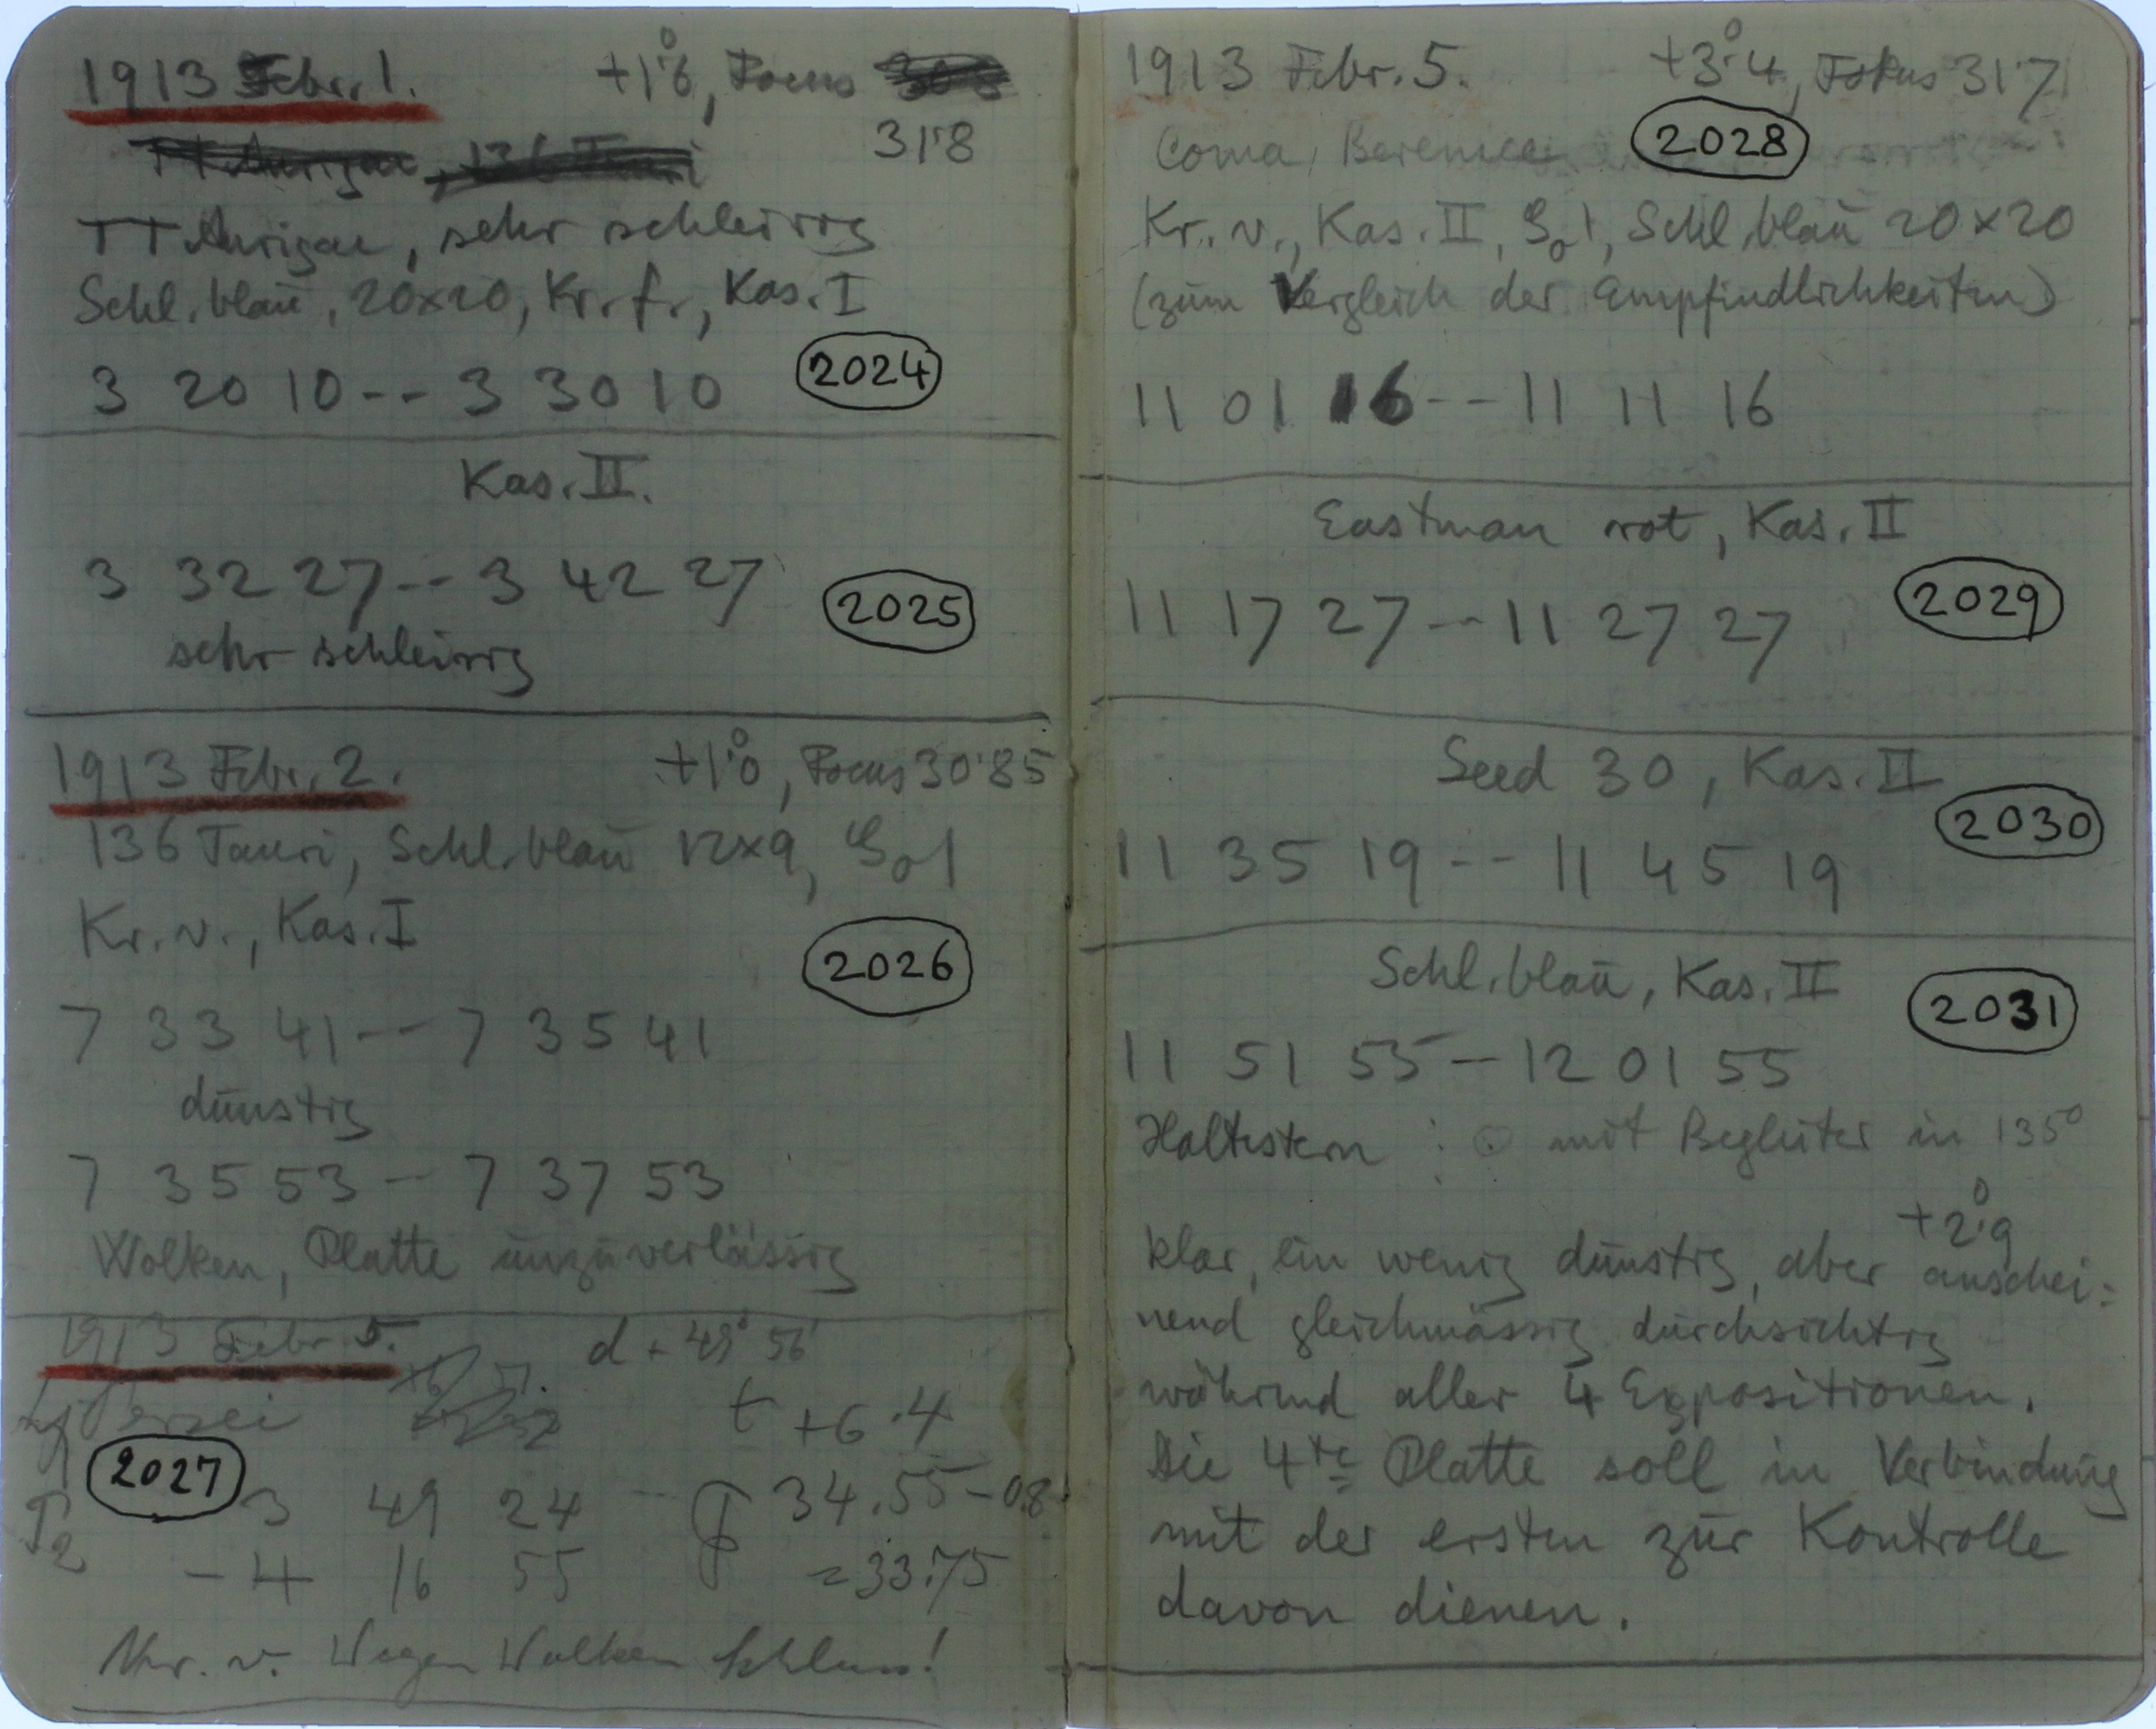 1913 Febr. 1. +1°6, Focus
31'8
TT Aurigae, sehr schleirig
Schl. blau, 20x20, Kr. f., Kas. I
3 20 10 -- 3 30 10 2024
Kas. II.
3 32 27 -- 3 42 27 2025
sehr schleirig
1913 Febr. 2. +1°0, Focus 30'85
136 Tauri, Schl. blau 12x9,
Kr. v., Kas. I
2026
7 33 41 -- 7 35 41
dunstig
7 35 53 -- 7 37 53
Wolken, Platte unzuverlässig
1913 Febr 5. d + 49° 56'
Persei t +6.4
2027 3 49 24 -- 34.55 - 0.8
- 4 16 55 = 33.75
v. Wegen Wolken Schluss!
1913 Febr. 5. +3°4, Fokus 31'7
Coma Berenice 2028
Kr. v., Kas. II, Schl. blau 20x20
(zum Vergleich der Empfindlichkeiten)
11 01 16 -- 11 11 16
Eastman rot, Kas. II
11 17 27 -- 11 27 27 2029
Seed 30, Kas. II
2030
11 35 19 -- 11 45 19
Schl. blau, Kas. II
2031
11 51 55 -- 12 01 55
Haltestern : ⊙ mit Begleiter in 135°
+2°9
klar, ein wenig dunstig, aber anschei=
nend gleichmässig durchsichtig
während aller 4 Expositionen.
Die 4te Platte soll in Verbindung
mit der ersten zur Kontrolle
davon dienen.